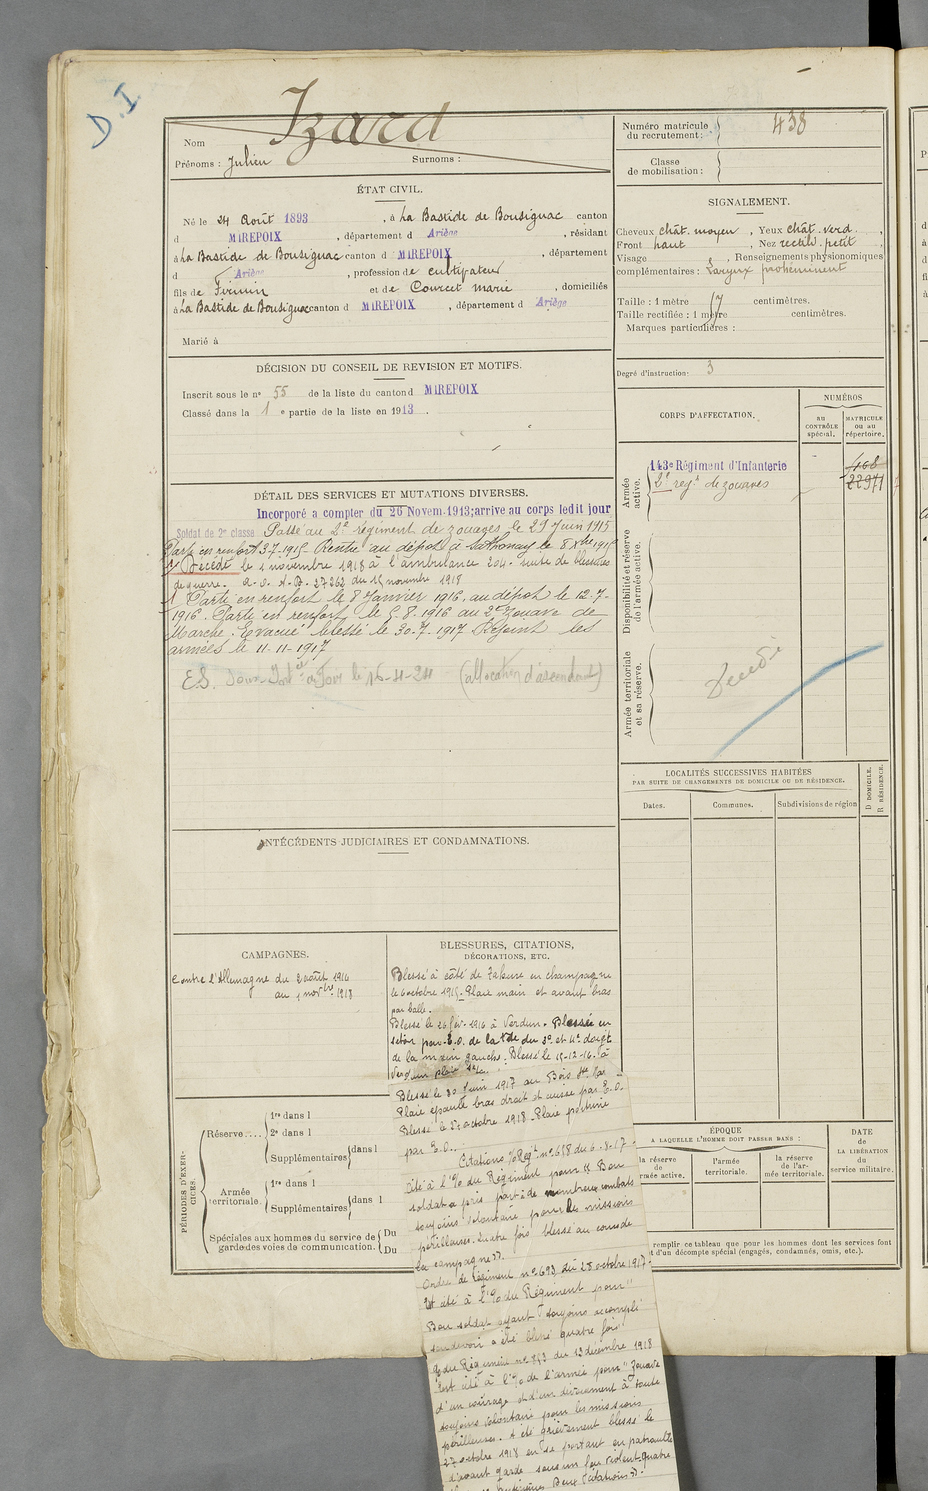 D.I
Nom Izard
Prénoms : Julien Surnoms :
ÉTAT CIVIL.
Né le 24 Août 1893, à La Bastide de Bousignac canton
d MIREPOIX, département d Ariège, résidant
à La Bastide de Bousignac canton d MIREPOIX, département
d Ariège, profession de cultivateur
fils de Firmin et de Courcet marie, domiciliés
à La Bastide de Bousignac canton d MIREPOIX, département d Ariège
Marié à
DÉCISION DU CONSEIL DE REVISION ET MOTIFS.
Inscrit sous le n° 55 de la liste du canton d MIREPOIX
Classé dans la 1 e partie de la liste en 1913.
DÉTAIL DES SERVICES ET MUTATIONS DIVERSES.
Incorporé a compter du 26 Novem. 1913; arrive au corps ledit jour
Soldat de 2e classe Passé au 2e régiment de zouaves le 29 Juin 1915
Parti en renfort 3-7-1915 Rentré au dépôt à Sathonay le 8 Xbre 1915
Décédé le 1 novembre 1918 à l'ambulance 204. suite de blessures
de guerre. a.s. A.D. 27262 du 15 novembre 1918
Parti en renfort le 8 Janvier 1916, au dépot le 12-7-
1916. Parti en renfort le 5-8-1916 au 2e Zouave de
Marche. Evacué blessé le 30-7-1917 Rejoint les
armées le 11-11-1917
le 16-4-24 (allocation d'ascendant)
ANTÉCÉDENTS JUDICIAIRES ET CONDAMNATIONS.
CAMPAGNES.
Contre l'Allemagne du 2 août 1914
au 1 novbre 1918
BLESSURES, CITATIONS,
DÉCORATIONS, ETC.
Blessé à côté de Tahure en champagne
le 6 octobre 1915. Plaie main et avant bras
par balle.
Blessé le 26 fév. 1916 à Verdun. Blessé en
secteur par E.O. de la tête du 3e et 4e doigt
de la main gauche. Blessé le 15-12-16 à
Verdun plaie
Blessé le 30 Juin 1917 au Bois
Plaie épaule bras droit et cuisse par E.O.
Blessé le 27 octobre 1918. Plaie poitrine
par E.O.
Citations Régt n° 658 du 6-8-17
Cité à l'% du Régiment pour " Bon
soldat a pris part à de nombreux combats
toujours volontaire pour les missions
périlleuses. Quatre fois blessé au cours de
la campagne ".
Ordre de Régiment n° 693 du 28 octobre 1917
Est cité à l'% du Régiment pour "
Bon soldat ayant toujours accompli
son devoir a été blessé quatre fois
% du Régiment n° 843 du 12 décembre 1918
Est cité à l'% de l'armée pour " Zouave
d'un courage et d'un dévouement à toute
toujours volontaire pour les missions
périlleuses. A été grièvement blessé le
27 octobre 1918 en se portant en patrouille
d'avant garde sous un feu violent. quatre
blessures antérieures Deux Citations ".
PÉRIODES D'EXERCICES.
Réserve....
1re dans l
2e dans l
Supplémentaires dans l
Armée territoriale.
1re dans l
Supplémentaires dans l
Spéciales aux hommes du service de garde des voies de communication.
Du
Du
Numéro matricule du recrutement : 438
Classe de mobilisation :
SIGNALEMENT.
Cheveux chât. moyen, Yeux chât. verd.,
Front haut, Nez rectil. petit,
Visage, Renseignements physionomiques
complémentaires : Larynx prohéminent
Taille : 1 mètre 57 centimètres.
Taille rectifiée : 1 mètre centimètres.
Marques particulières :
Degré d'instruction : 3
CORPS D'AFFECTATION.
NUMÉROS
AU CONTRÔLE spécial.
MATRICULE ou au répertoire.
Armée active.
143e Régiment d'Infanterie
2e regt de zouaves 22971
Disponibilité et réserve de l'armée active.
Armée territoriale et sa réserve.
Décédé
LOCALITÉS SUCCESSIVES HABITÉES
PAR SUITE DE CHANGEMENTS DE DOMICILE OU DE RÉSIDENCE.
Dates. Communes. Subdivisions de région
D DOMICILE.
R RÉSIDENCE.
ÉPOQUE
A LAQUELLE L'HOMME DOIT PASSER DANS :
la réserve de armée active.
l'armée territoriale.
la réserve de l'armée territoriale.
DATE DE LA LIBÉRATION du service militaire.
remplir ce tableau que pour les hommes dont les services font
d'un décompte spécial (engagés, condamnés, omis, etc.).